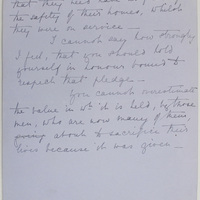 that they need have no fear for
the safety of their homes, whilst
they were on service —
I cannot say how strongly
I feel, that you should hold
yourself in honour bound to
respect that pledge —
You cannot overestimate
the value in wh: it is held, by those
men, who are now many of them,
going about to sacrifice their
lives because it was given —